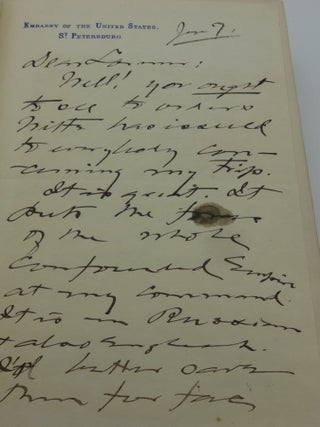 EMBASSY OF THE UNITED STATES.
ST PETERSBURG.
Jan 7.
Dear
Well! you ought
to see to orders
Witte has issued
to everybody con-
cerning my trip.
It is great. It
puts the
of the whole
Confounded Empire
at my command.
It is in Russian
& also English.
I'd better save
them for